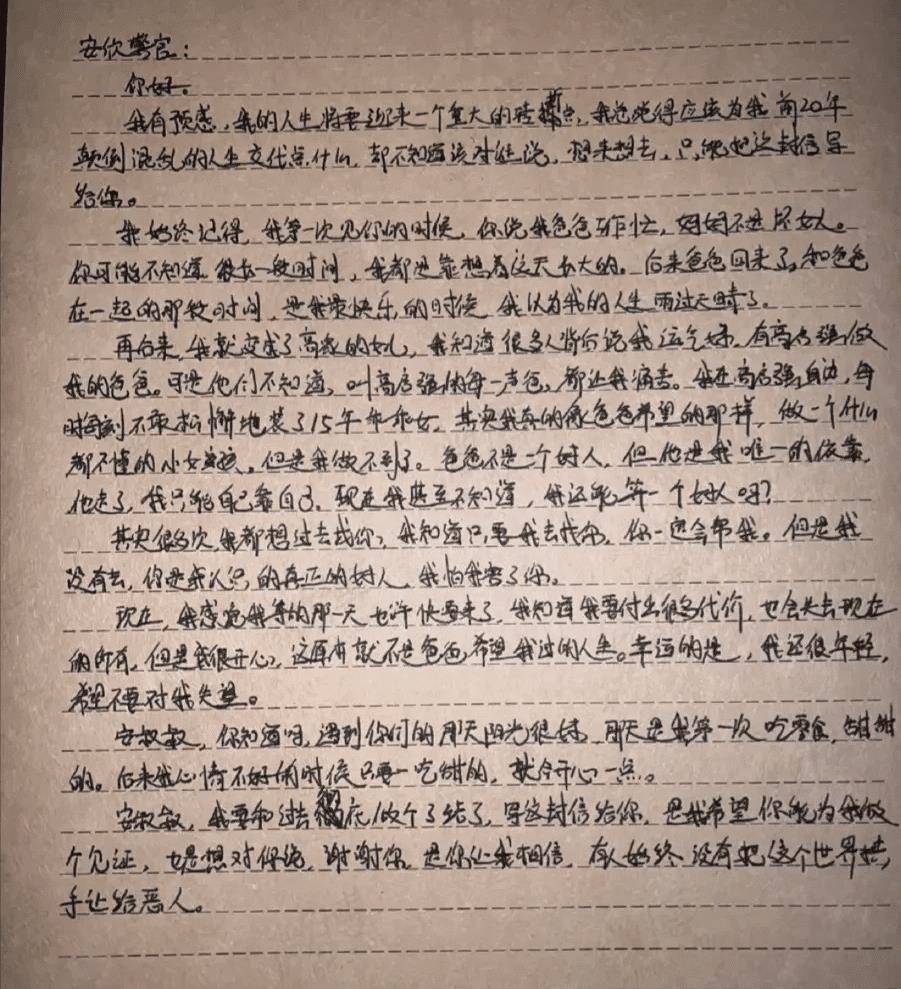 安欣警官:
你好。
我有预感,我的人生将要迎来一个重大的转折点,我总觉得应该为我前20年
颠倒混乱的人生交代点什么,却不知道该对谁说,想来想去,只能把这封信写
给你。
我始终记得,我第一次见你的时候,你说我爸爸工作忙,妈妈不是坏女人。
你可能不知道很长一段时间,我都是靠想着这天长大的。后来爸爸回来了,和爸爸
在一起的那段时间,是我最快乐的时候,我认为我的人生雨过天晴了。
再后来,我就变成了高家的女儿,我知道很多人背后说我运气好,有高启强做
我的爸爸。可是他们不知道,叫高启强的每一声爸,都让我痛苦。我在高启强身边,每
时每刻不敢松懈地装了15年乖乖女。其实我真的像爸爸希望的那样,做一个什么
都不懂的小女孩,但是我做不到了。爸爸不是一个好人,但他是我唯一的依靠,
他走了,我只能自己靠自己。现在我甚至不知道,我还能算一个好人吗?
其实很多次,我都想过去找你,我知道只要我去找你,你一定会帮我。但是我
没有去,你是我认识的真正的好人,我怕我害了你。
现在,我感觉我等的那一天也许快要来了,我知道我要付出很多代价,也会失去现在
的所有,但是我很开心,这原本就不是爸爸希望我过的人生。幸运的是,我还很年轻,
希望不要对我失望。
安叔叔,你知道吗,遇到你们的那天阳光很好,那天是我第一次吃零食,甜甜
的。后来我心情不好的时候只要一吃甜的,就会开心一点。
安叔叔,我要和过去彻底做个了结了,写这封信给你,是我希望你能为我做
个见证,也是想对你说,谢谢你,是你让我相信,有人始终没有把这个世界拱
手让给恶人。